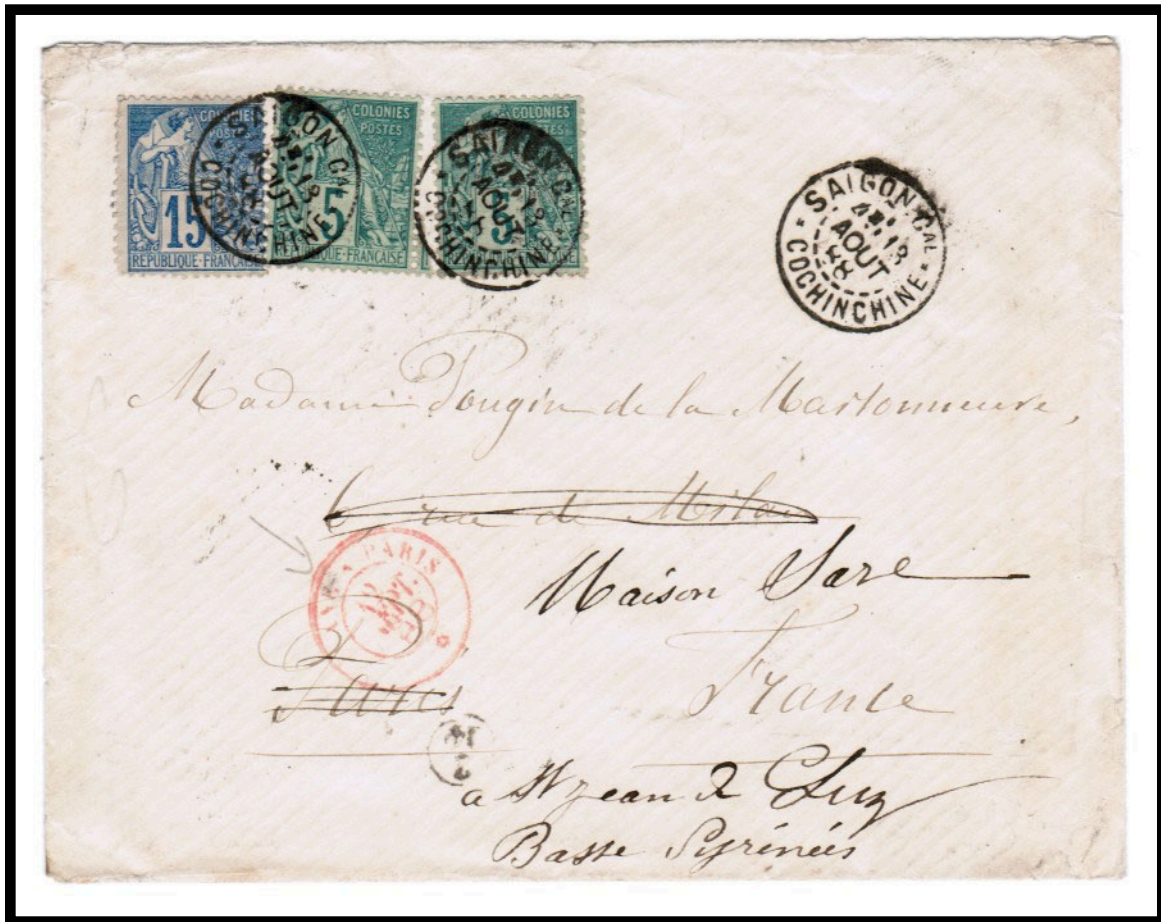 COLONIES
POSTES
15
RÉPUBLIQUE-FRANÇAISE
COLONIES
POSTES
5
RÉPUBLIQUE-FRANÇAISE
COLONIES
POSTES
5
SAIGON CAL
13
AOUT
COCHINCHINE
SAIGON CAL
13
AOUT
COCHINCHINE
SAIGON CAL
13
AOUT
88
COCHINCHINE
Madame Pougin de la Maisonneuve,
6 rue de Milan
PARIS
SEPT.
Maison Sare
Paris
France
a St jean de Luz
Basse Pyrénées